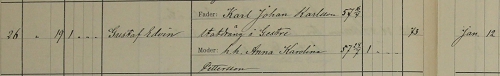 Fader: Karl Johan Karlsson 57 6/2
26 " 19 1 - - Gustaf Edvin Statdräng i 73 Jan. 12
Moder: h. h. Anna Karolina 57 1 - -
Pettersson